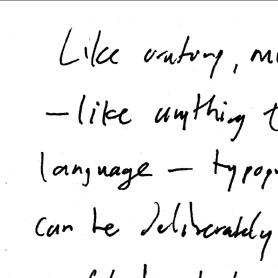 Like oratory, mu
—like anything t
language — typogr
can be deliberately